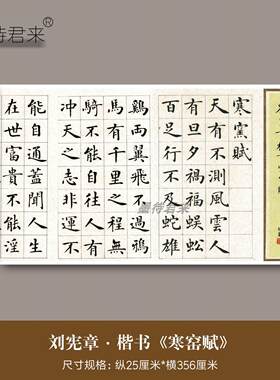 待君来®
寒窯賦
天有不測風雲人
有旦夕禍福蜈蚣
百足行不及蛇雄
鷄兩翼飛不過鴉
馬有千里之程無
騎不能自往人有
冲天之志非運不
能自通蓋聞人生
在世富貴不能淫
墨待君来
刘宪章·楷书《寒窑赋》
尺寸规格：纵25厘米*横356厘米